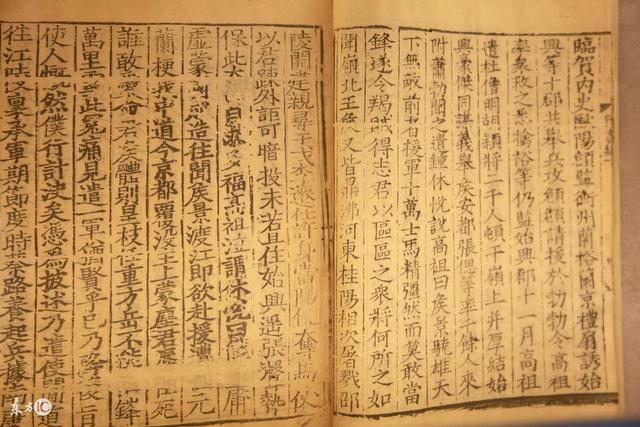 臨賀內史歐陽頠監衡州蘭裕蘭京禮扇誘始
興等十郡共舉兵攻頠頠請援於勃勃令高祖
率衆救之悉擒裕等仍監始興郡十一月高祖
遣杜僧明胡穎將二千人頓于嶺上并厚結始
興豪傑同謀義舉侯安都張偲等率千餘人來
附蕭勃聞之遣鍾休悅說高祖曰侯景驍雄天
下無敵前者援軍十萬士馬精彊然而莫敢當
鋒遂令羯賊得志君以區區之衆將何所之如
聞嶺北王侯又皆鼎沸河東桂陽相次屠戮邵
陵開建親尋干戈李遷仕許身當陽便奪馬仗
以君疎外詎可暗投未若且住始興遥張聲勢
保此太山自求多福高祖泣謂休悅曰僕本庸
虛蒙國成造往聞侯景渡江即欲赴援遭值元
蘭梗我中道今京都覆沒主上蒙塵君辱臣死
誰敢愛命君侯體則皇枝任重方岳不能摧鋒
萬里雪此冤痛見遣一軍猶賢乎已乃降後旨
使人慨然僕行計決矣憑為披述乃遣使間道
往江陵稟承軍期節度時蔡路養起兵據南
東方IC